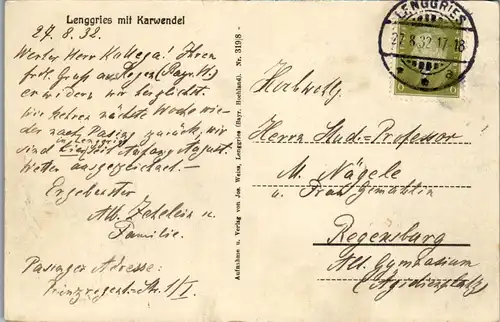 Lenggries mit Karwendel
27. 8. 32.
Werter Herr Kollega! Ihren
frdl. Gruß aus Regen (Bayr. W.)
erwidern wir herzlichst.
Wir kehren nächste Woche wie-
der nach Pasing zurück, wir
in Lenggries
sind hier seit Anfang August.
Wetter ausgezeichnet. –
Ergebenster
Alb. u.
Familie.
Pasinger Adresse:
Prinzregent.-Str. 1/I
Aufnahme u. Verlag von Jos. Weiss, Lenggries (Bayr. Hochland). Nr. 3198
LENGGRIES
27.8.32. 17-18
a
6 6
Hochwohlg.
Herrn Stud.-Professor
M. Nägele
u. Frau Gemahlin
Regensburg
Alt. Gymnasium
(Agidienplatz)